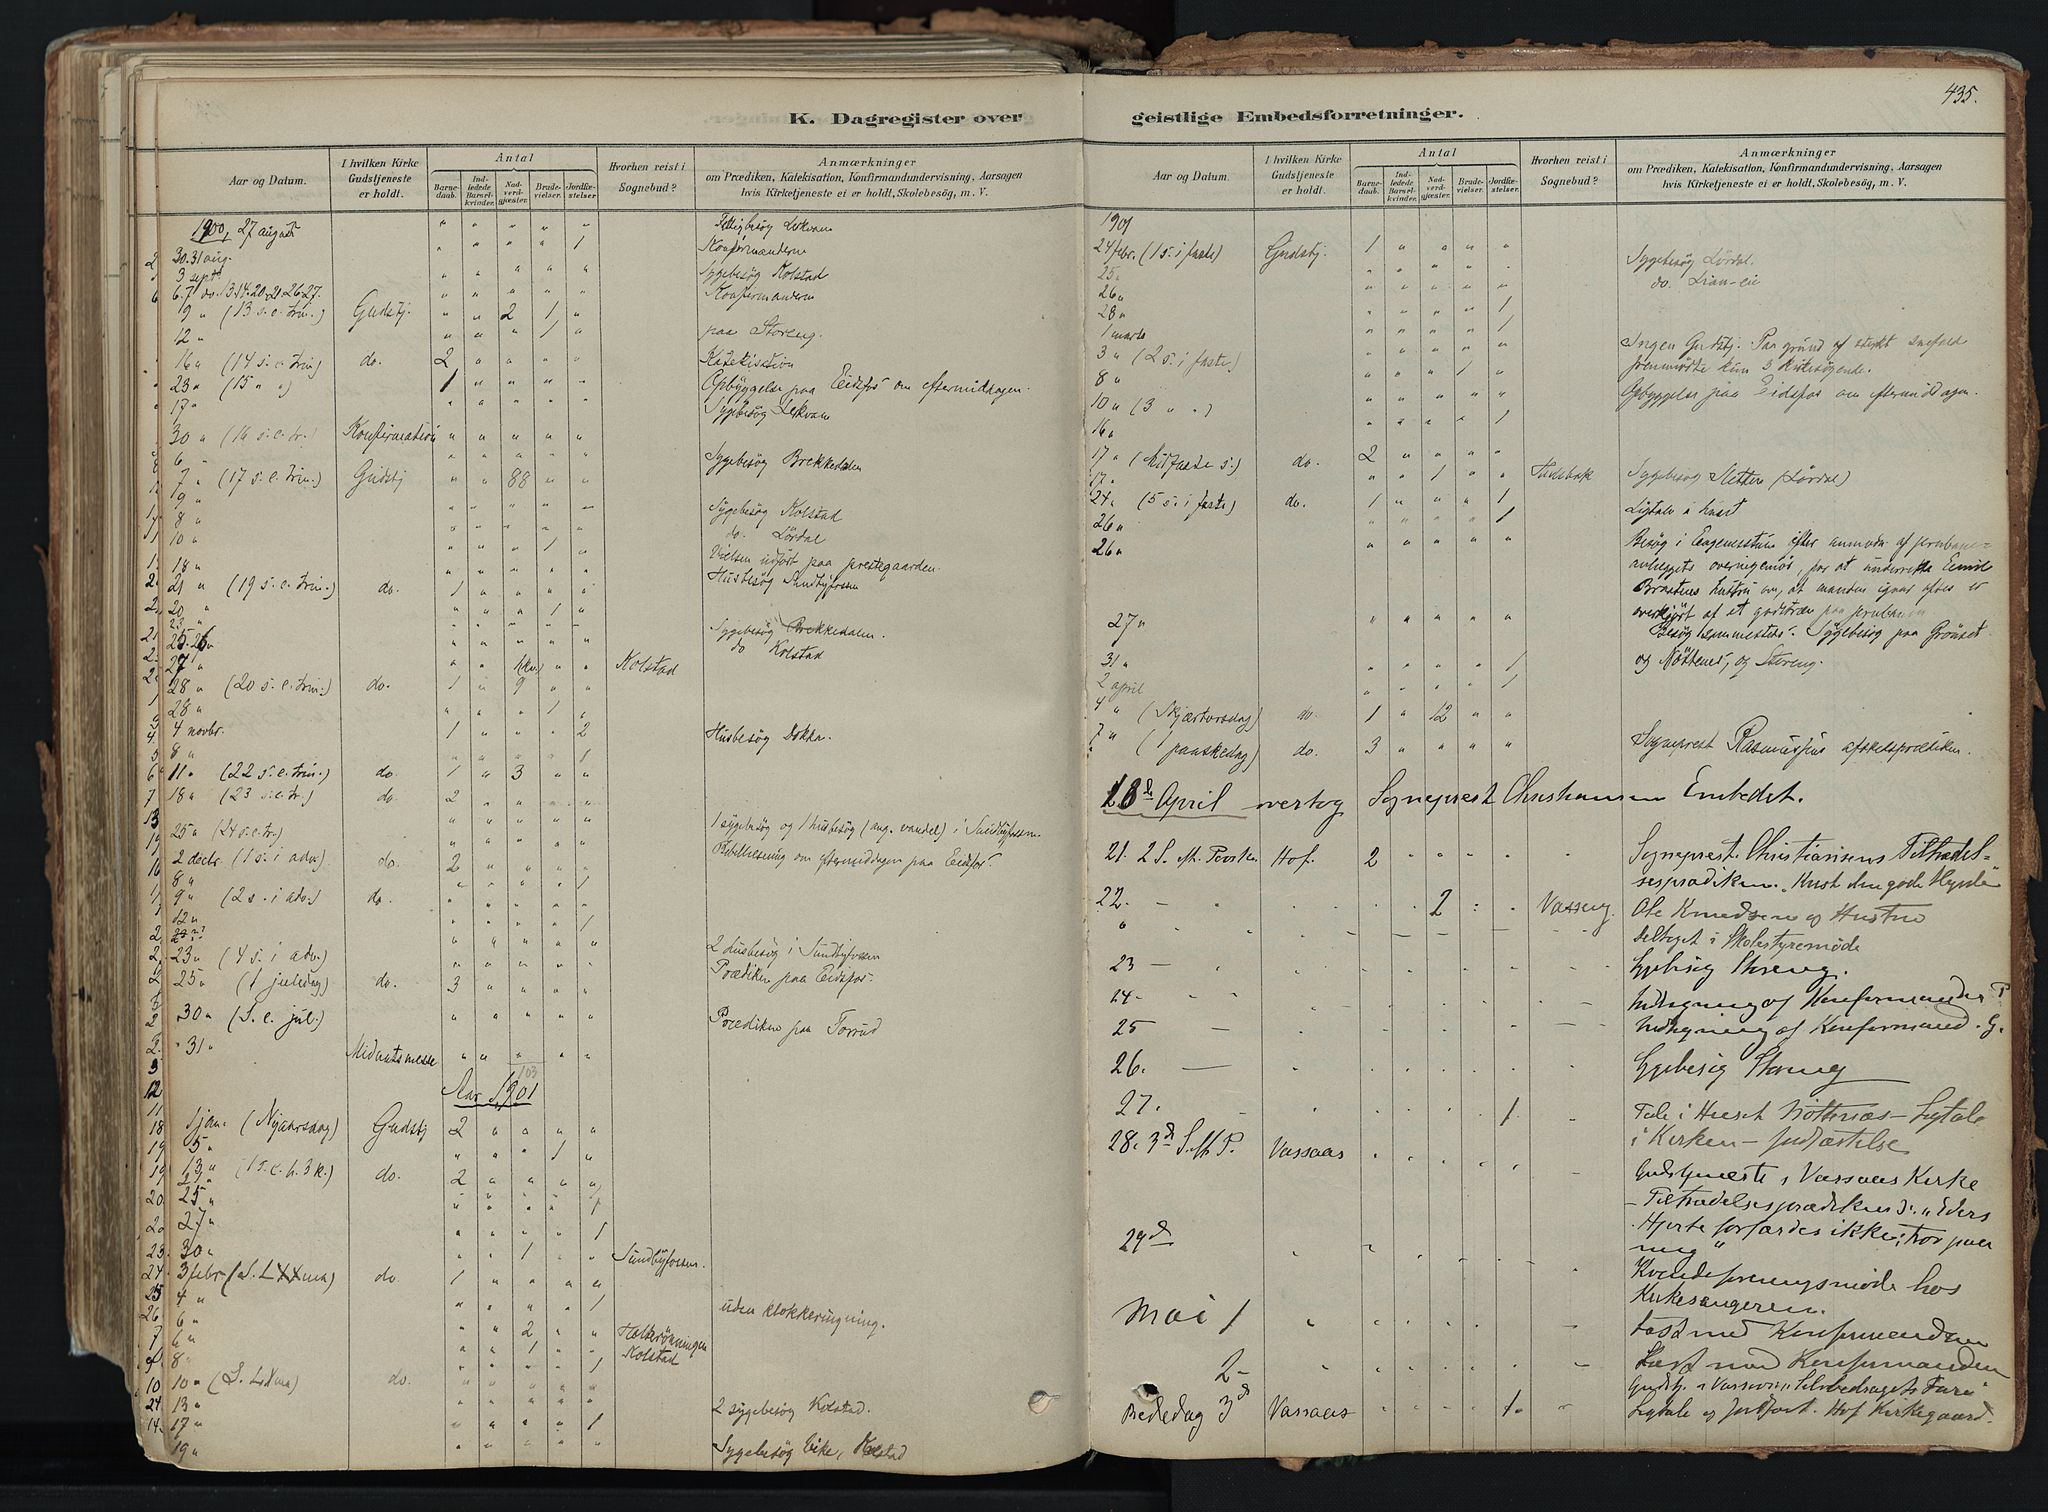 435.
K. Dagregister over
geistlige Embedsforretninger.
Aar og Datum.
I hvilken Kirke Gudstjeneste er holdt.
Antal
Barnedaab.
Indledede Barselkvinder.
Nadverdgjæster.
Brudevielser.
Jordfæstelser.
Hvorhen reist i Sognebud?
Anmærkninger
om Prædiken, Katekisation, Konfirmandundervisning, Aarsagen
hvis Kirketjeneste ei er holdt, Skolebesøg, m. V.
1900, 27 august " " " " " Lekvam
30. 31 aug. " " " " 1 Konfirmanderne
3 sept. " " " " " Sygebesøg Kolstad
6. 7 do. 13. 14. 20. 21. 26. 27. " " " " " Konfirmanderne
19 " (13 s. e. trin.) Gudstj. " " 2 1 "
12 " " " " 1 " paa Storeng.
16 " (14 s. e. trin) do. 2 " " " " Katekisation
23 " (15 " ") 1 " " " " Opbyggelse paa Eidsfos om eftermiddagen.
17 " " " " " " Sygebesøg Lekvam
30 " (16 s. e. tr.) Konfirmation " " " " "
6 " " " " " " Sygebesøg Brekkedalen
7 " (17 s. e. trin.) Gudstj " " 88 " "
9 "
8 " " " " " " Sygebesøg Kolstad
10 " " " " " " do. Lördal
18 " " " " 1 " Vielsen udført paa prestegaarden.
21 " (19 s. e. trin.) do. 1 " " " " Husbesøg Sundbyfossen
20 " " " " 1 "
23 "
25. 26 " " " " " " Sygebesøg Brekkedalen.
27 " " " 1 " " Kolstad do Kolstad
28 " (20 s. e. trin.) do. 1 " 9 " "
28 " " " " 1 "
4 novbr. 1 " " " 2 Husbesøg Dokka.
8 " " " " " 1
11 " (22 s. e. trin.) do. 1 " 3 " "
18 " (23 s. e. tr.) do. 2 " " " "
25 " (24 s. e. tr.) " " " " " 1 sygebesøg og 1 husbesøg (ang. vandel) i Sundbyfossen.
2 decbr. (1 s. i adv.) do. 2 " " " " Bibellæsning om eftermiddagen paa Eidsfos.
8 " " " " " 1
9 " (2 s. i adv.) do. " " " " "
12 " " " " " 1
23 " (4 s. i adv.) " " " " " 2 husbesøg i Sundbyfossen
25 " (1 juledag) do. 3 " " " " Prædiken paa Eidsfos.
30 " (S. e. jul.) " " " " " Prædiken paa Torrud
31 " Midnatsmesse " " " " "
103
Aar 1901
1 jan. (Nyaarsdag) Gudstj 2 " " " "
5 " " " " 1 "
13 " (1 s. e. h. 3 k.) do. 2 " " " "
25 "
27 " " " " " 1
30 " " " 1 " " Sundbyfossen.
3 febr. (S. LXXma) do. 1 " " " "
4 " " " " " 1 uden klokkeringning.
6 " " " 2 " " Holterönningen
6 " " " 1 " " Kolstad
8 " " " " " 1
10 " (S. LXma) do. " " " " "
13 " " " " " " 2 sygebesøg Kolstad.
17 " " " " " 1
19 " " " " " " Sygebesøg Vike, Kolstad
Aar og Datum.
I hvilken Kirke Gudstjeneste er holdt.
Antal
Barnedaab.
Indledede Barselkvinder.
Nadverdgjæster.
Brudevielser.
Jordfæstelser.
Hvorhen reist i Sognebud?
Anmærkninger
om Prædiken, Katekisation, Konfirmandundervisning, Aarsagen
hvis Kirketjeneste ei er holdt, Skolebesøg, m. V.
1901
24 febr. (1 s. i faste) Gudstj. 1 " " " "
25 " " " " " " Sygebesøg Lördal.
26 " " " " " " do. Lian-eie
28 " " " " " 1
1 marts " " " " 1
3 " (2 s. i faste) " " " " " Ingen Gudstj. Paa grund af sterkt snefald
8 " " " " 1 " fremmødte kun 3 kirkesøgende.
10 " (3 " ") " " " " " Opbyggelse paa Eidsfos om eftermiddagen.
16 " " " " " 1
17 " (Midfaste s.) do. 2 " " " "
17 " " " 1 " " Sygebesøg Sletten (Lördal)
24 " (5 s. i faste) do. 1 " " " 1 Ligtale i huset
26 " " " " " 1
26 " " " " " " Besøg i Eugenesstuen efter anmodn. af jernbane-
anlæggets overingeniør, for at underrette Emil
Braatens hustru om, at manden igaar aftes er
overkjørt af et godstræn paa jernbanen
27 " " " " " " Besøg sammesteds. Sygebesøg paa Grönset
31 " " " " " 1 og Nöttenes, og Storeng.
2 april " " " " 1
4 " (Skjærtorsdag) do. 1 " 12 " "
7 " (1 paaskedag) do. 3 " " " " Sogneprest Rasmussens afskedsprædiken.
18d April overtog Sogneprest Christiansen Embedet.
21. 2 S. eft. Paaske. Hof. 2 " " " " Sogneprest Christiansens Tiltrædel-
sesprædiken. "Krist den gode Hyrde"
22. 2 Vasseng. Ole Knudsen og Hustru
" Deltaget i Skolestyremöde
23 Sygebesög Storeng.
24 Indtegning af Konfirmander P.
25 Indtegning af Konfirmand. G.
26. Sygebesög Storeng
27. 1 Tale i Huset Nöttenæs – Ligtale
i Kirken – Jordfæstelse
28. 3d S. eft. P. Vassaas Gudstjeneste i Vassaas Kirke
– Tiltrædelsesprædiken: "Eders
Hjerte forfærdes ikke; tro paa
mig"
29d Kvindeforeningsmöde hos
Kirkesangeren.
Mai 1 Læst med Konfirmanden
2 – Læst med Konfirmanden
Bededag 3d Vassaas 1. Gudstj. i Vassaas "Selvbedragets Fare"
Ligtale og Jordfæst. Hof Kirkegaard.